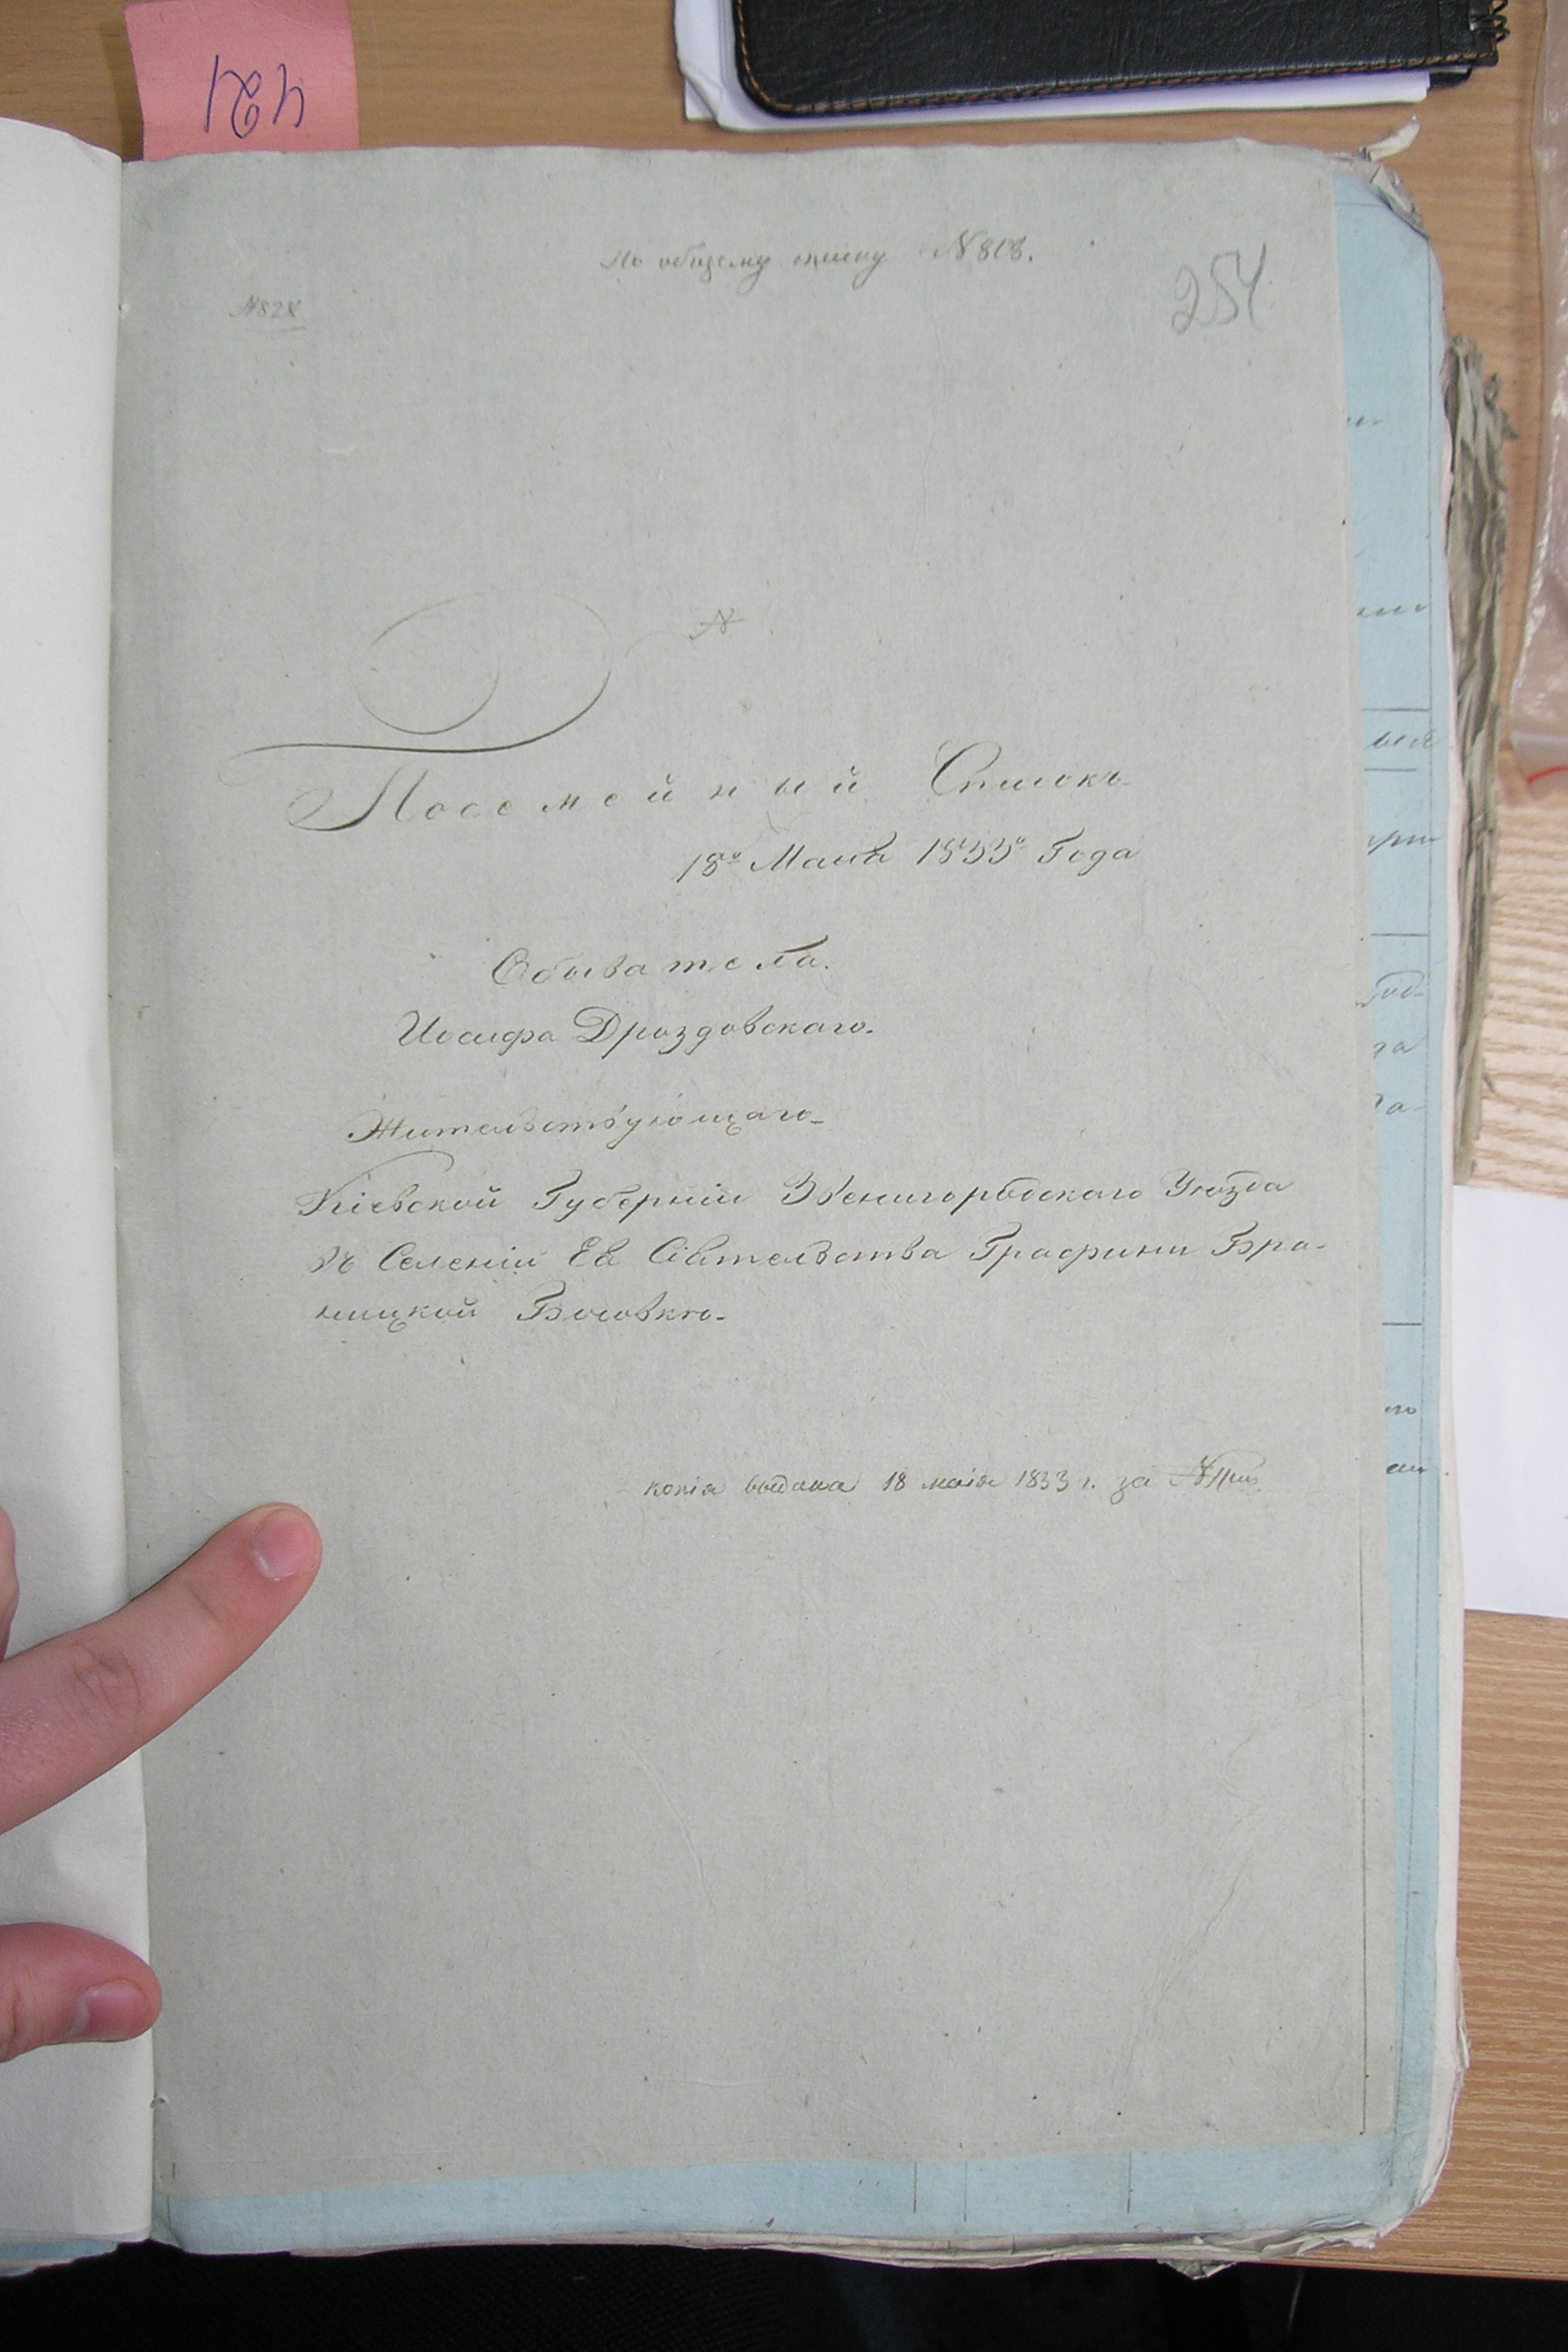 421
По общему списку N 808.
254
N 828
N
Посемейный Списокъ
18го Маия 1833го Года
Обывателя.
Иосифа Дроздовскаго.
Жительствующаго
Кіевской Губерніи Звенигородскаго Уѣзда
въ Селеніи Ея Сіятельства Графини Бра-
ницкой Босовкѣ.
копія выдана 18 маія 1833 г. за N